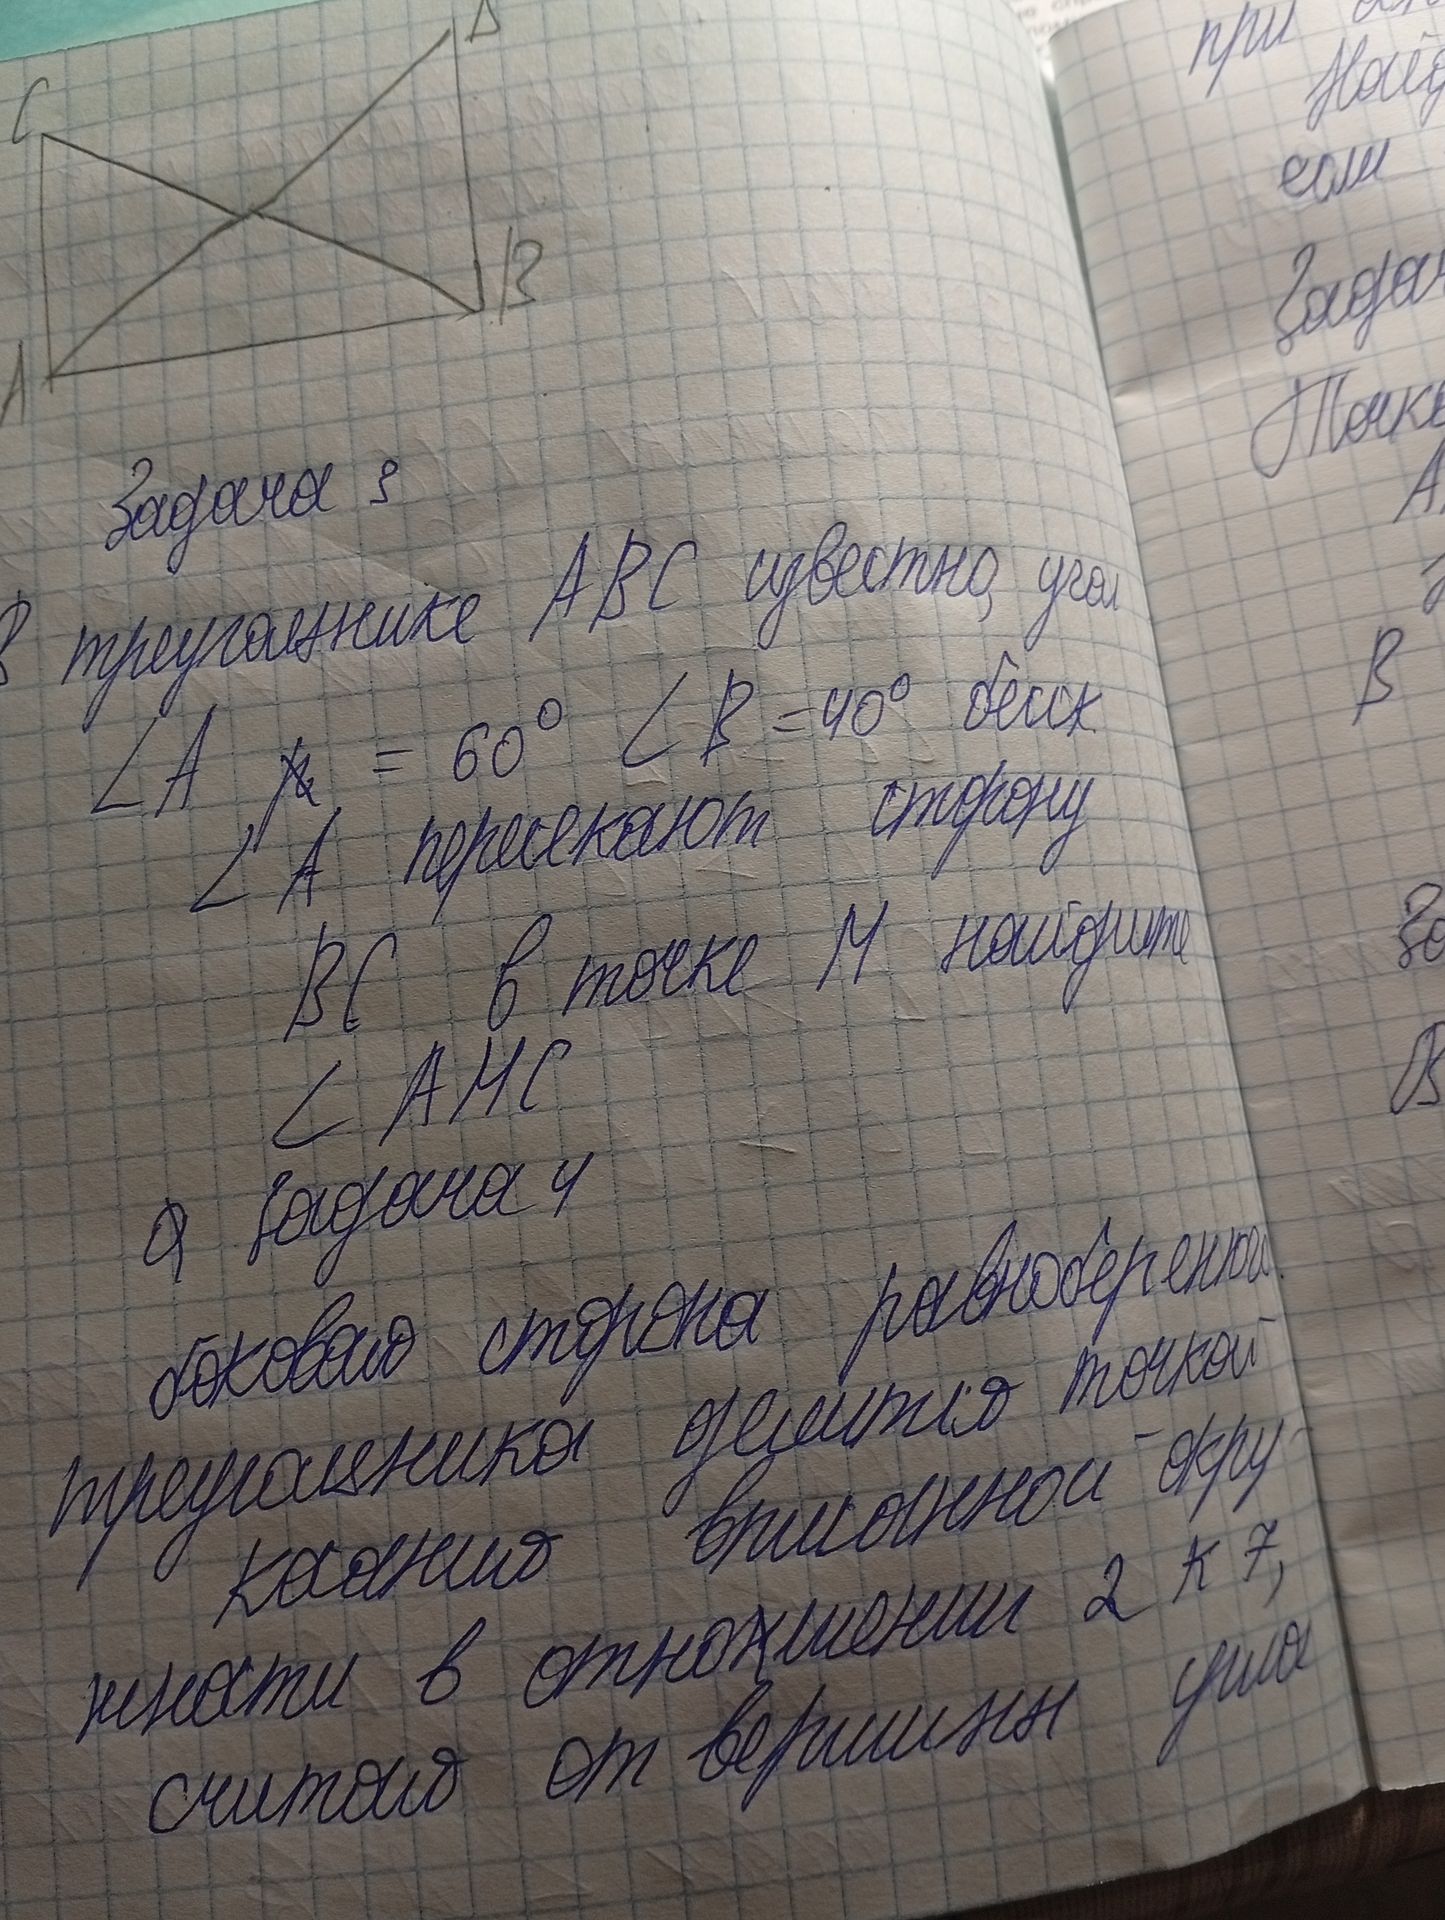 C
D
A
B
Задача 3
В треугольнике ABC известно, угол
∠A = 60° ∠B = 40° бисск
∠A пересекают сторону
BC в точке M найдите
∠AMC
Задача 4
боковая сторона равноберенног.
треугольника делится точкой
касания вписанной окру-
жности в отношении 2 к 7,
считая от вершины угла
при
Найд
если
Задач
Точка
A
В
За
В